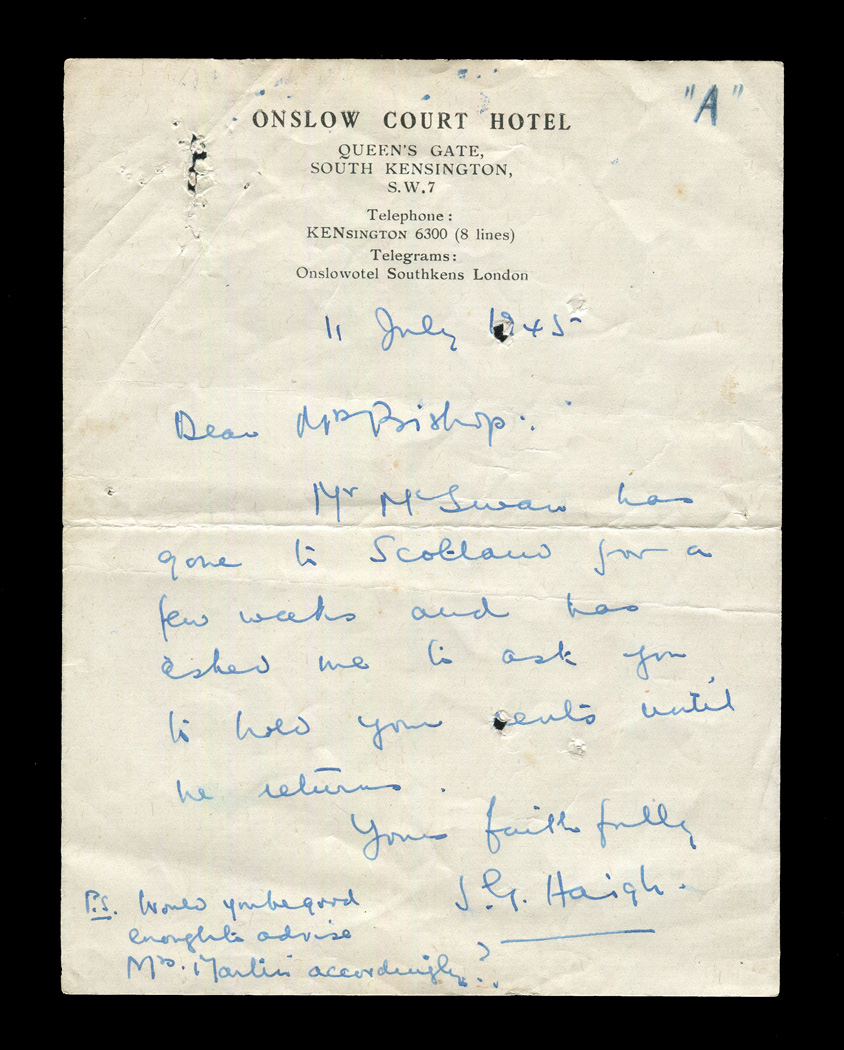 "A"
ONSLOW COURT HOTEL
QUEEN'S GATE,
SOUTH KENSINGTON,
S.W.7
Telephone:
KENSINGTON 6300 (8 lines)
Telegrams:
Onslowotel Southkens London
11 July 1945
Dear Mrs Bishop:.
Mr McSwan has
gone to Scotland for a
few weeks and has
asked me to ask you
to hold your rents until
he returns.
Yours faithfully
J.G. Haigh.
P.S. Would you be good
enough to advise
Mrs. Martin accordingly?.